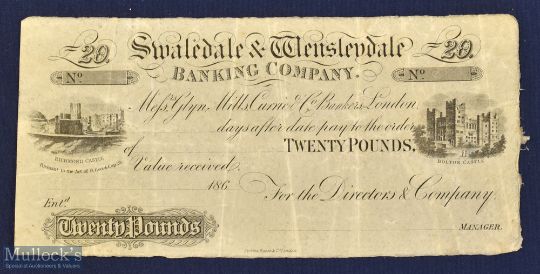 £20. Swaledale & Wensleydale £20.
BANKING COMPANY.
No No
Messrs Glyn, Mills, Currie & Co. Bankers, London,
days after date pay to the order
of TWENTY POUNDS,
RICHMOND CASTLE
BOLTON CASTLE
Value received.
186
For the Directors & Company.
Entd.
Twenty Pounds
MANAGER.
Mullock's
Specialist Auctioneers & Valuers